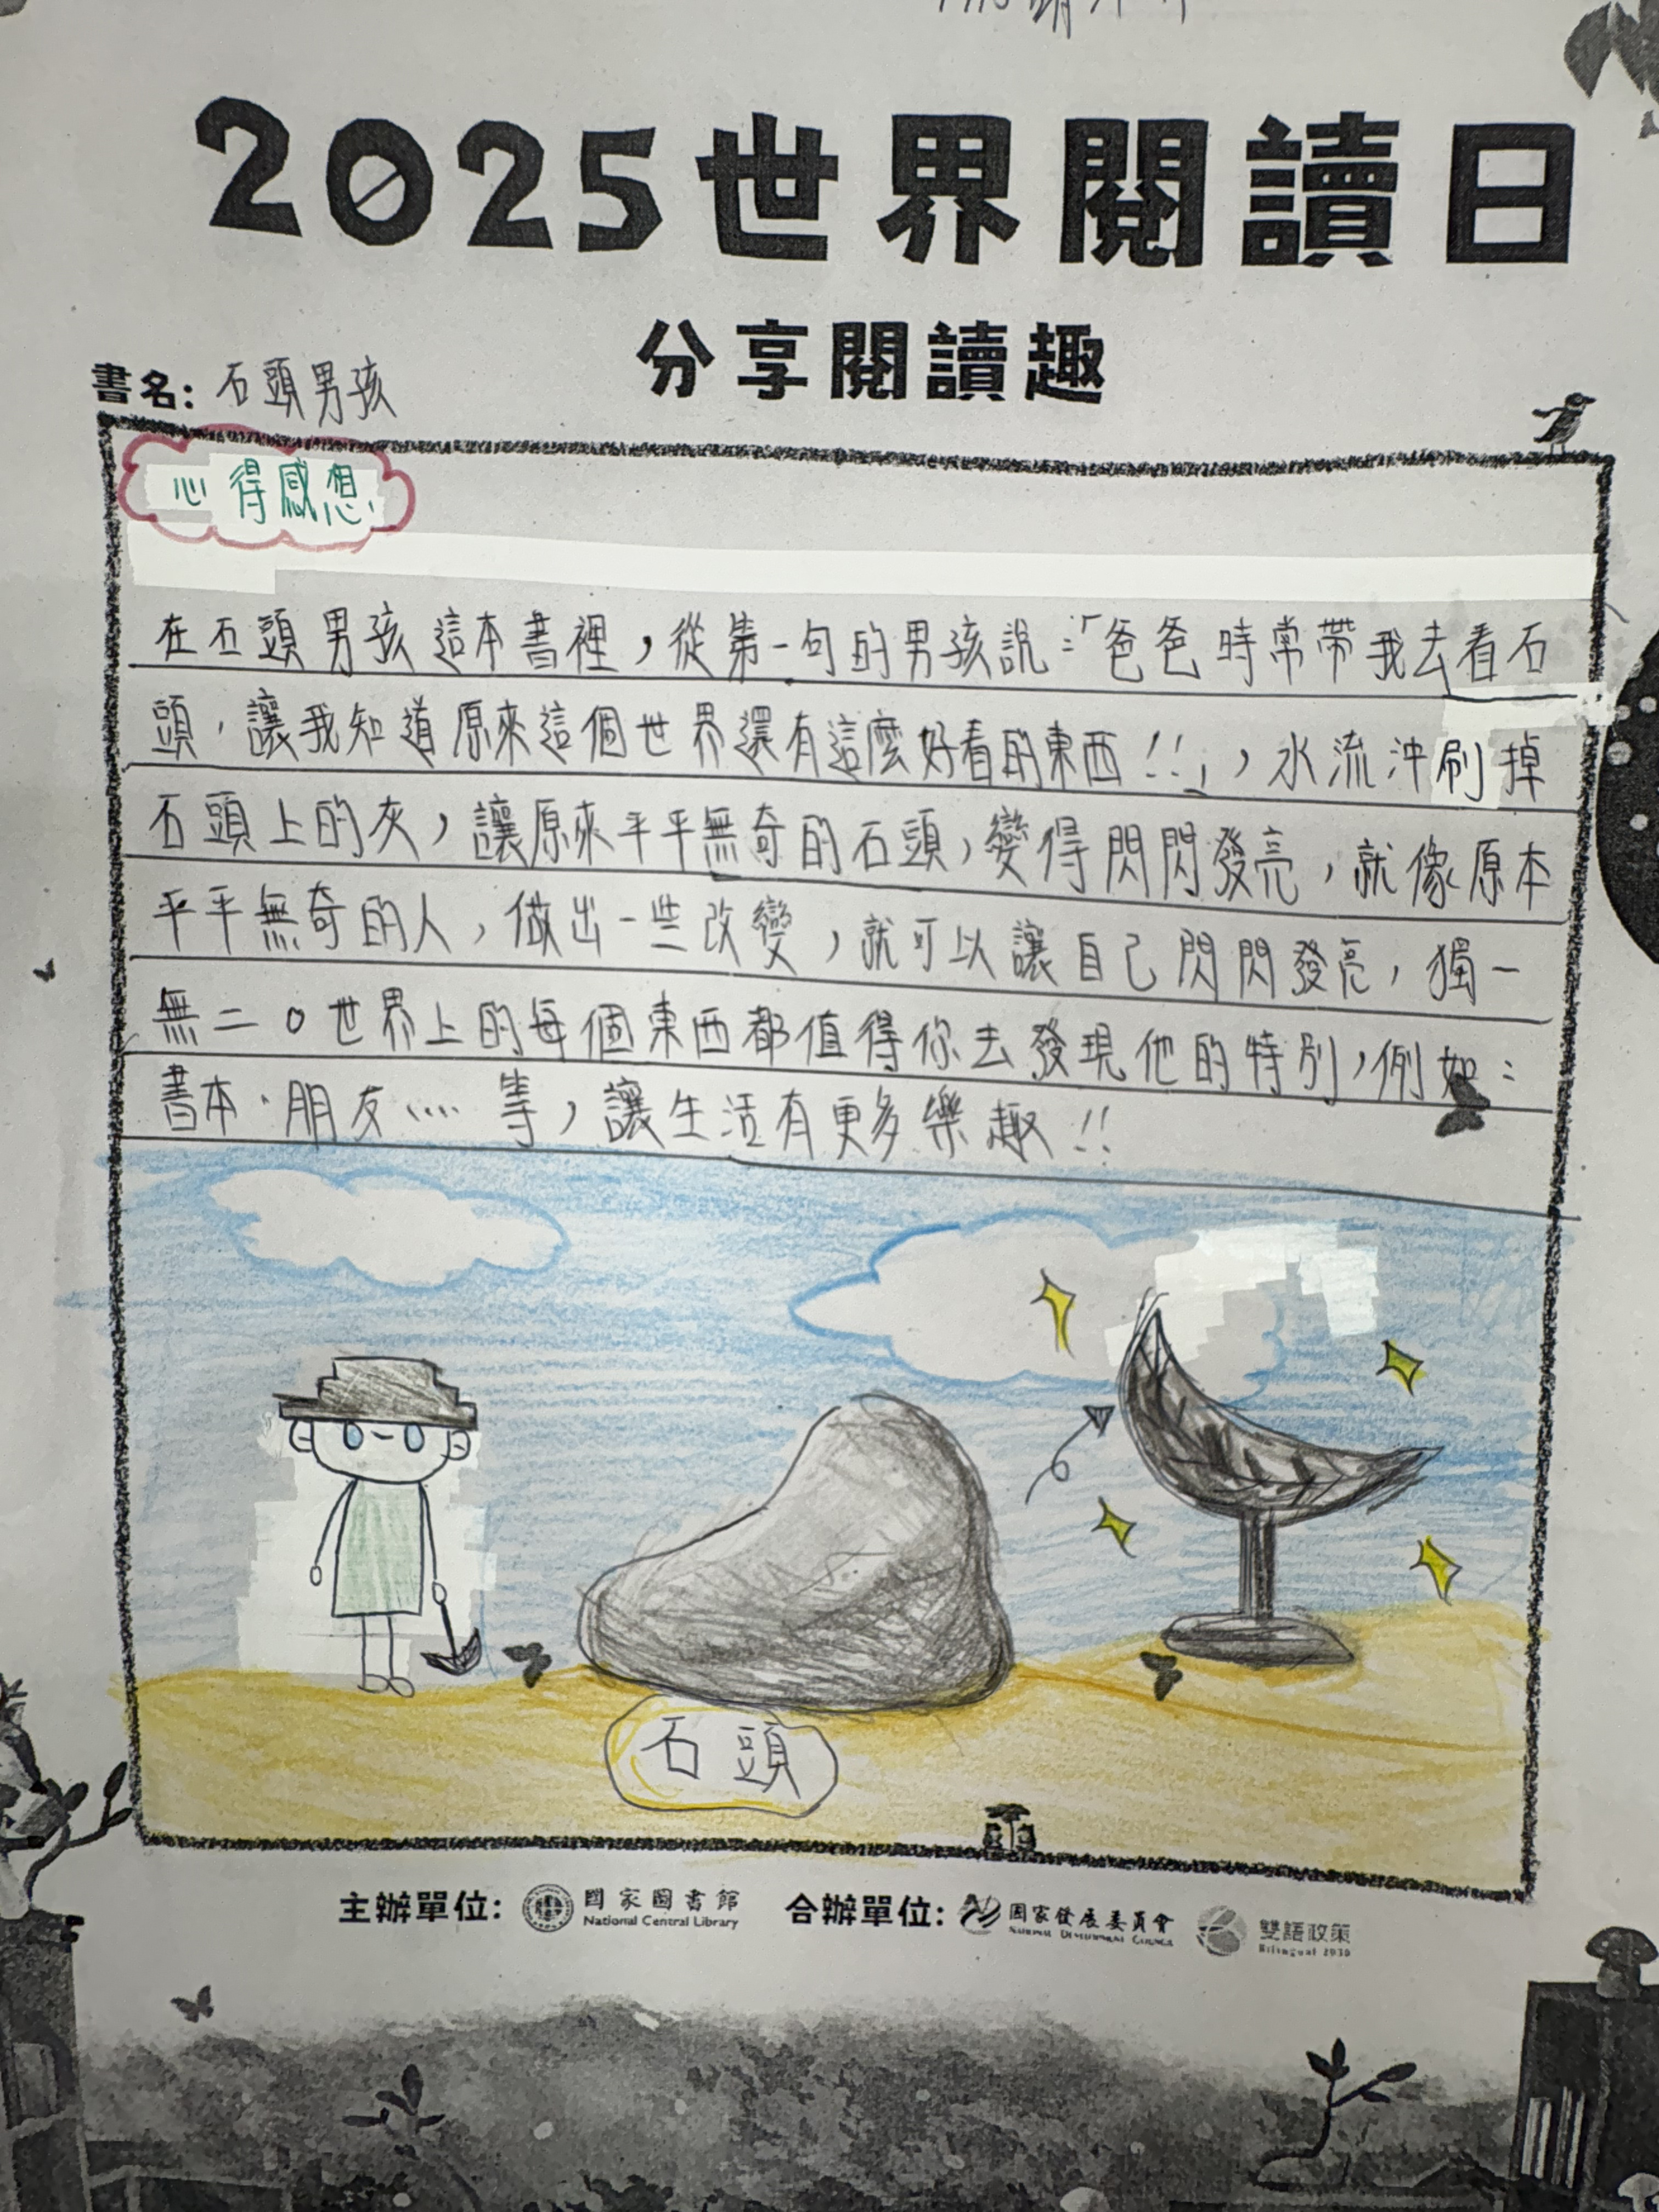 2025世界閱讀日
分享閱讀趣
書名：石頭男孩
心得感想
在石頭男孩這本書裡，從第一句的男孩說：「爸爸時常帶我去看石
頭，讓我知道原來這個世界還有這麼好看的東西！！」，水流沖刷掉
石頭上的灰，讓原來平平無奇的石頭，變得閃閃發亮，就像原本
平平無奇的人，做出一些改變，就可以讓自己閃閃發亮，獨一
無二。世界上的每個東西都值得你去發現他的特別，例如：
書本、朋友……等，讓生活有更多樂趣！！
石頭
主辦單位： 國家圖書館 National Central Library 合辦單位： 國家發展委員會 National Development Council 雙語政策 Bilingual 2030